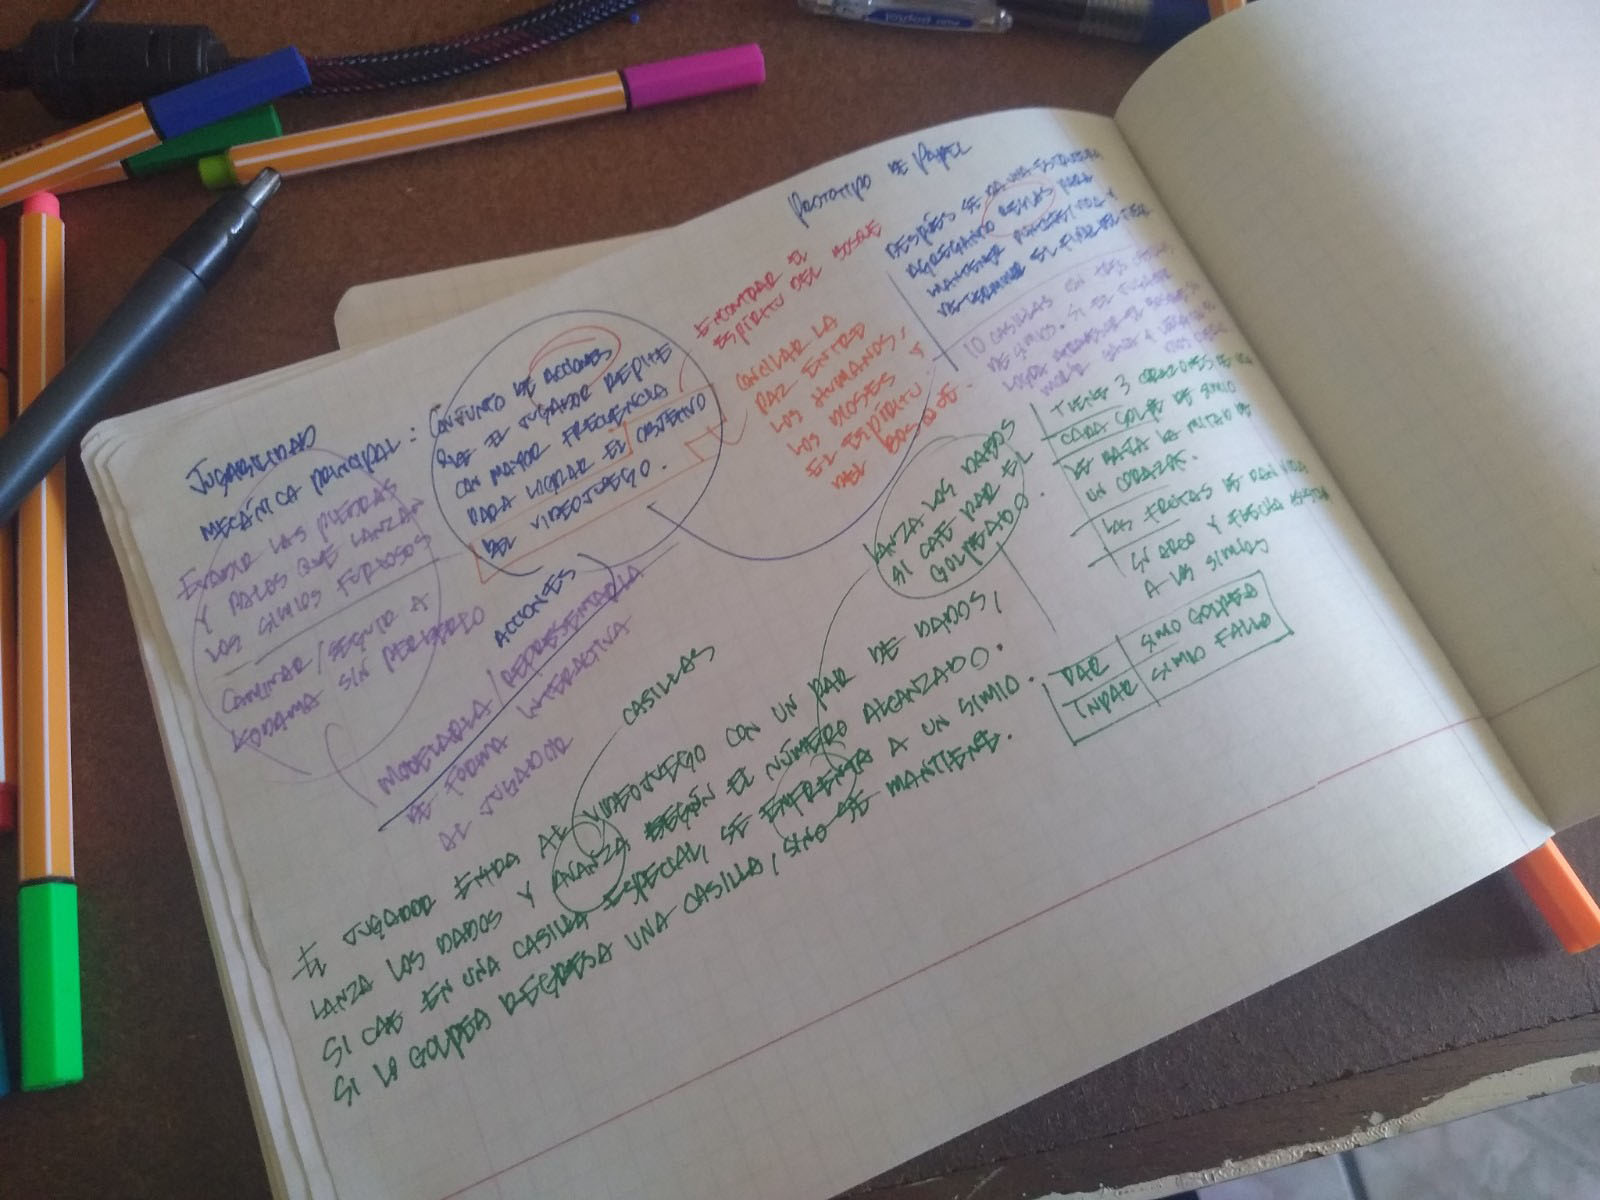 PROTOTIPO DE PAPEL
JUGABILIDAD
MECÁNICA PRINCIPAL:
CONJUNTO DE ACCIONES
QUE EL JUGADOR REPITE
CON MAYOR FRECUENCIA
PARA LOGRAR EL OBJETIVO
DEL VIDEOJUEGO.
EVADIR LAS PIEDRAS
Y PALOS QUE LANZAN
LOS SIMIOS FURIOSOS
CAMINAR/SEGUIR A
KODAMA SIN PERDERLO
ACCIONES
MODELARLA/REPRESENTARLA
DE FORMA INTERACTIVA
AL JUGADOR
ENCONTRAR EL
ESPÍRITU DEL BOSQUE
CONCILIAR LA
PAZ ENTRE
LOS HUMANOS,
LOS DIOSES Y
EL ESPÍRITU
DEL BOSQUE.
DESPUÉS SE DA UNA ESTRUCTURA
AGREGANDO REGLAS PARA
MANTENER
DETERMINAR EL FINAL DEL
10 CASILLAS CON TRES
DE SIMIOS. SI EL JUGADOR
LOGRA ATRAVESAR EL BOSQUE SIN
MORIR GANA Y
TIENE 3 CORAZONES DE VIDA
CADA GOLPE DE SIMIO
LE BAJA LA MITAD DE
UN CORAZÓN.
LAS FRUTAS LE DAN VIDA
SU ARCO Y FLECHA
A LOS SIMIOS
LANZA LOS DADOS
SI CAE PAR EL
GOLPEADO.
PAR SIMIO GOLPEA
INPAR SIMIO FALLO
CASILLAS
EL JUGADOR ENTRA AL VIDEOJUEGO CON UN PAR DE DADOS,
LANZA LOS DADOS Y AVANZA SEGÚN EL NÚMERO ALCANZADO.
SI CAE EN UNA CASILLA ESPECIAL, SE ENFRENTA A UN SIMIO.
SI LO GOLPEA REGRESA UNA CASILLA, SINO SE MANTIENE.